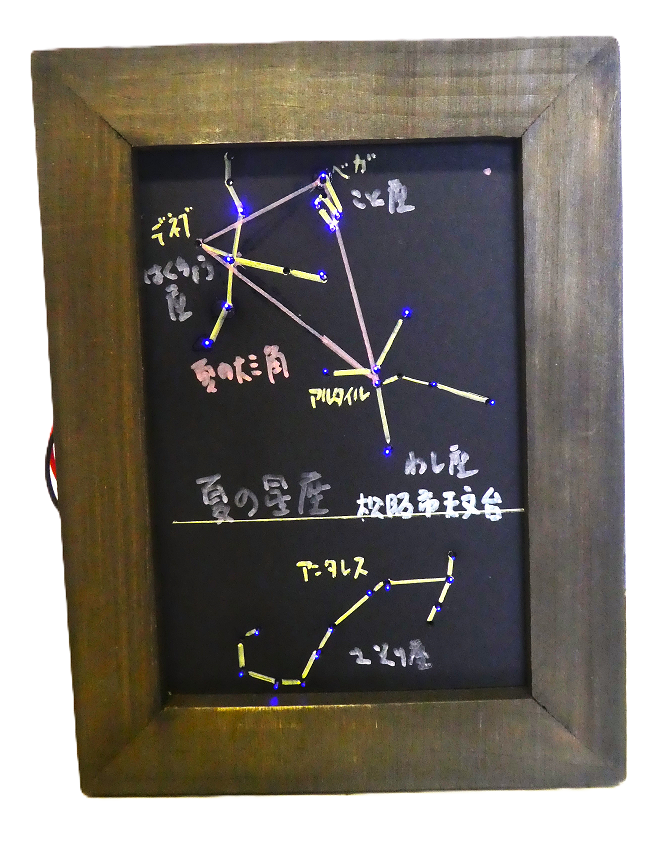 ベガ
こと座
デネブ
はくちょう
座
夏の大三角
アルタイル
わし座
夏の星座 松阪市天文台
アンタレス
さそり座